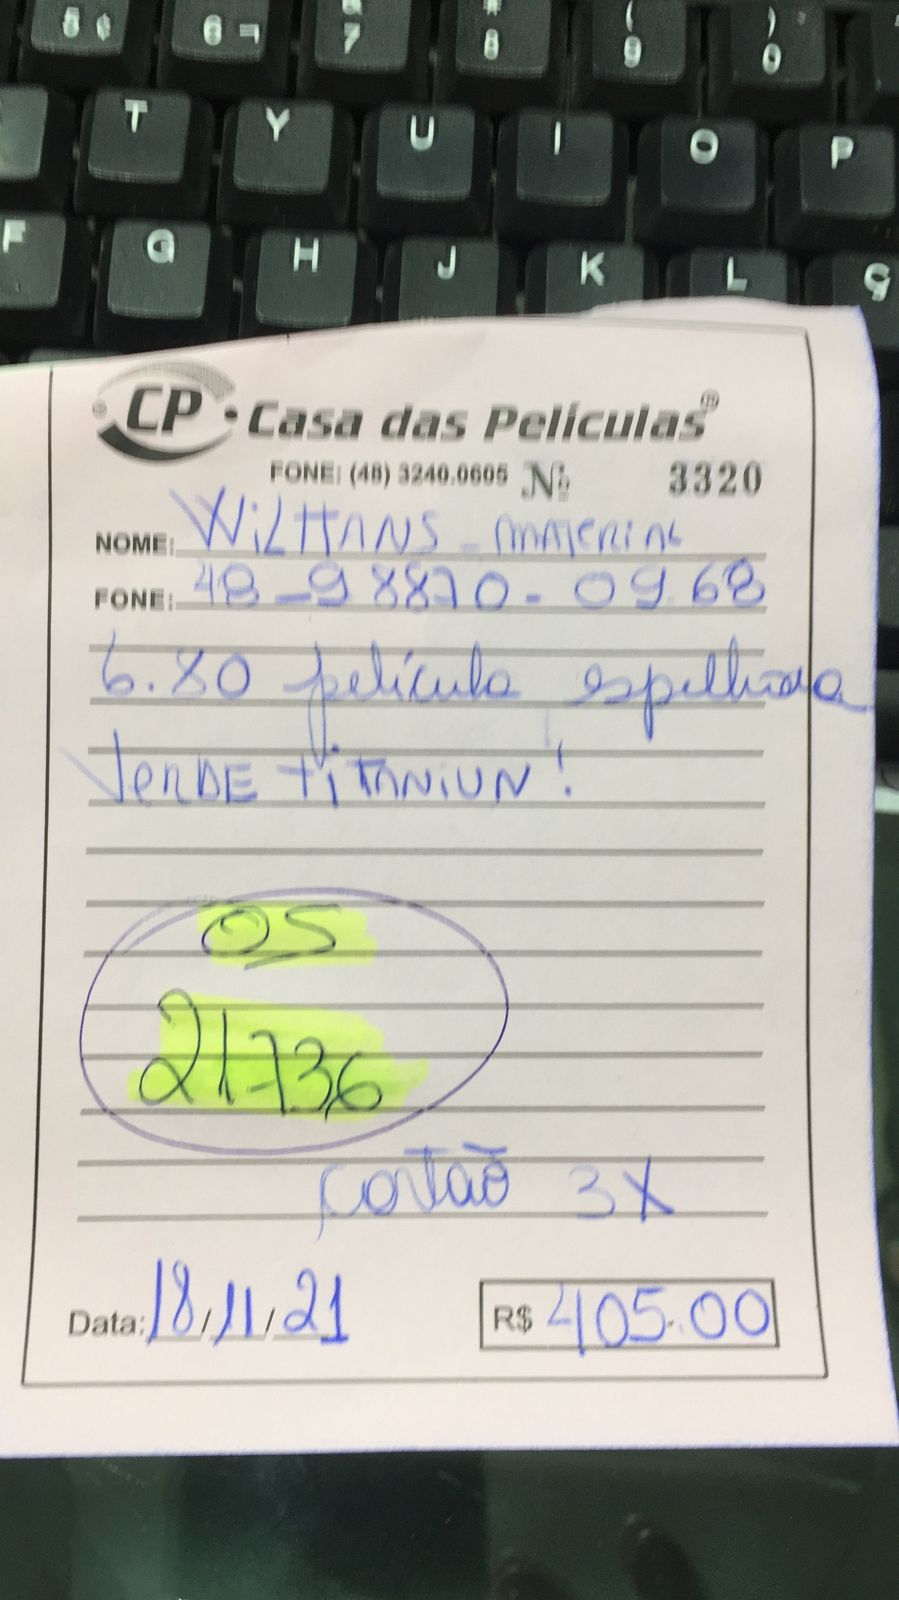 5 ¢ 6 ¬ & 7 * 8 ( 9 ) 0
T Y U I O P
F G H J K L Ç
CP Casa das Películas®
FONE: (48) 3240.0605 Nº 3320
NOME: WILHANS - MATERIAL
FONE: 48-98870-0968
6.80 película espelhada
VERDE TITANIUN!
OS
21736
cartão 3X
Data: 18/11/21 R$ 405.00